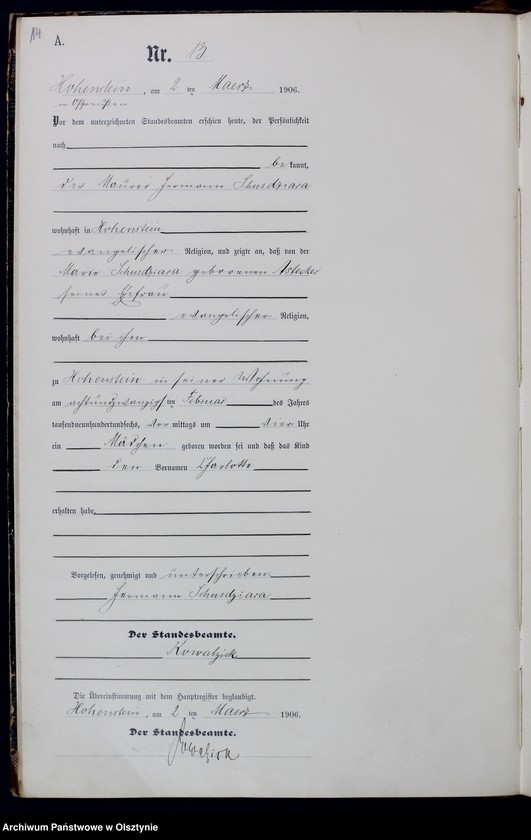 14.
A.
Nr. 13
Hohenstein, am 2 ten Maerz 1906.
in Ostpreußen
Vor dem unterzeichneten Standesbeamten erschien heute, der Persönlichkeit
nach
bekannt,
der Maurer Hermann Schusdziara
wohnhaft in Hohenstein
evangelischer Religion, und zeigte an, daß von der
Marie Schusdziara geborenen
seiner Ehefrau
evangelischer Religion,
wohnhaft bei ihm
zu Hohenstein in seiner Wohnung
am achtundzwanzigsten Februar des Jahres
tausendneunhundertundsechs, Vormittags um vier Uhr
ein Mädchen geboren worden sei und daß das Kind
den Vornamen Charlotte
erhalten habe
Vorgelesen, genehmigt und unterschrieben
Hermann Schusdziara
Der Standesbeamte.
Kowalzick
Die Übereinstimmung mit dem Hauptregister beglaubigt.
Hohenstein, am 2 ten Maerz 1906.
Der Standesbeamte.
Kowalzick
Archiwum Państwowe w Olsztynie